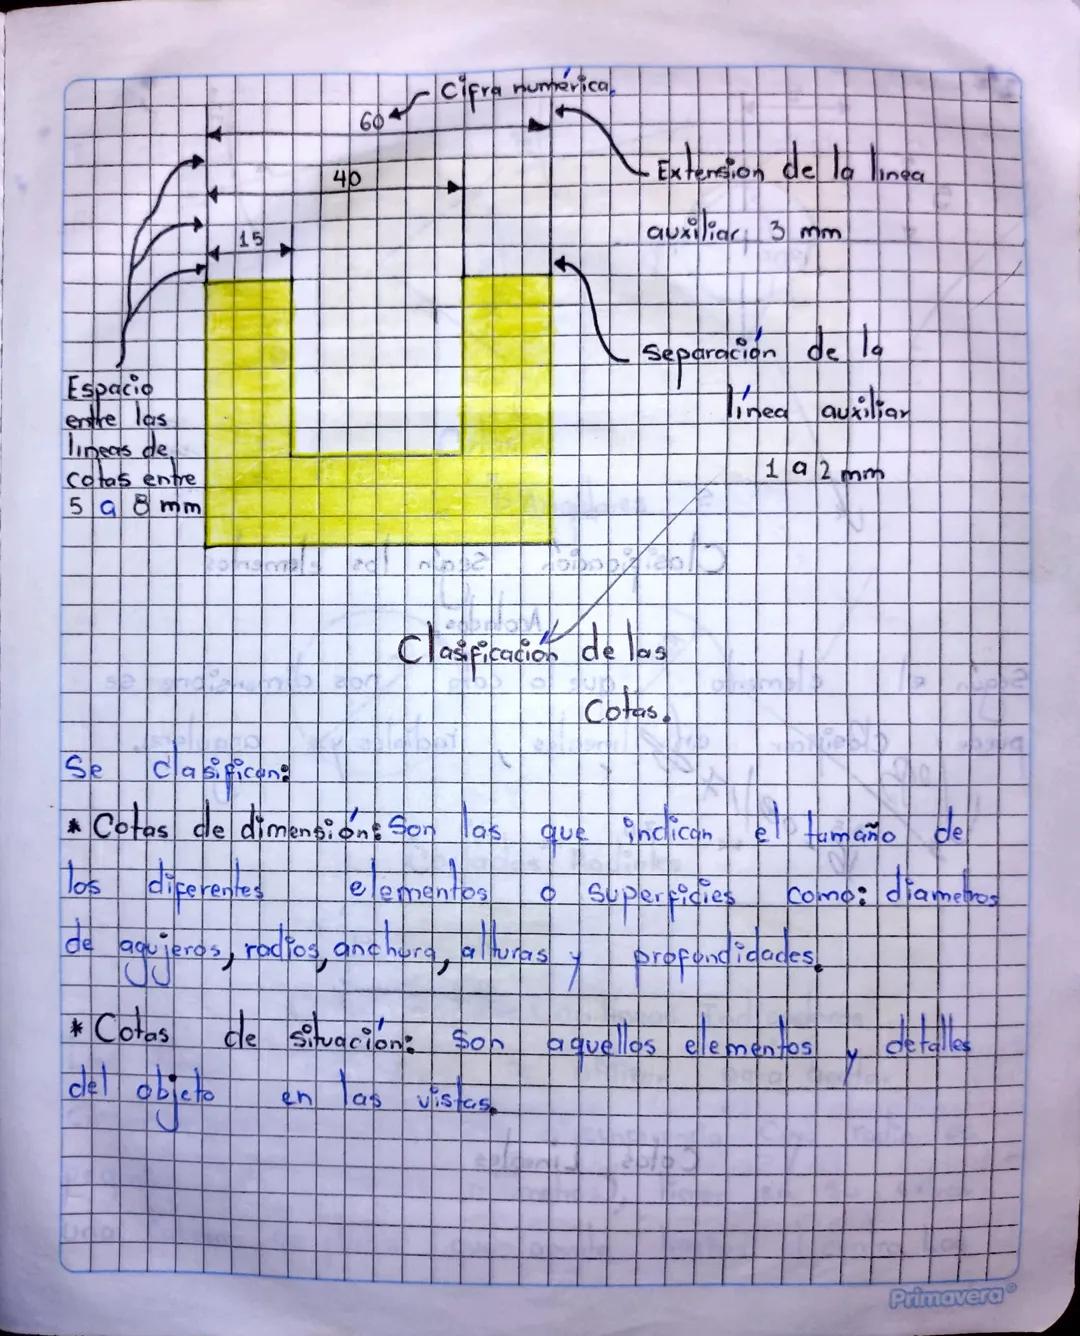 Cifra numérica.
60
Extension de la linea
auxiliar, 3 mm
40
15
Separación de la
línea auxiliar
1 a 2 mm
Espacio
entre las
lineas de
cotas entre
5 a 8 mm
Clasificación de las
Cotas.
Se clasifican:
* Cotas de dimensión: Son las que indican el tamaño de
los diferentes elementos o superficies como: diametros
de agujeros, radios, anchura, alturas y profundidades.
* Cotas de situación: Son aquellos elementos y detalles
del objeto en las vistas.
Primavera